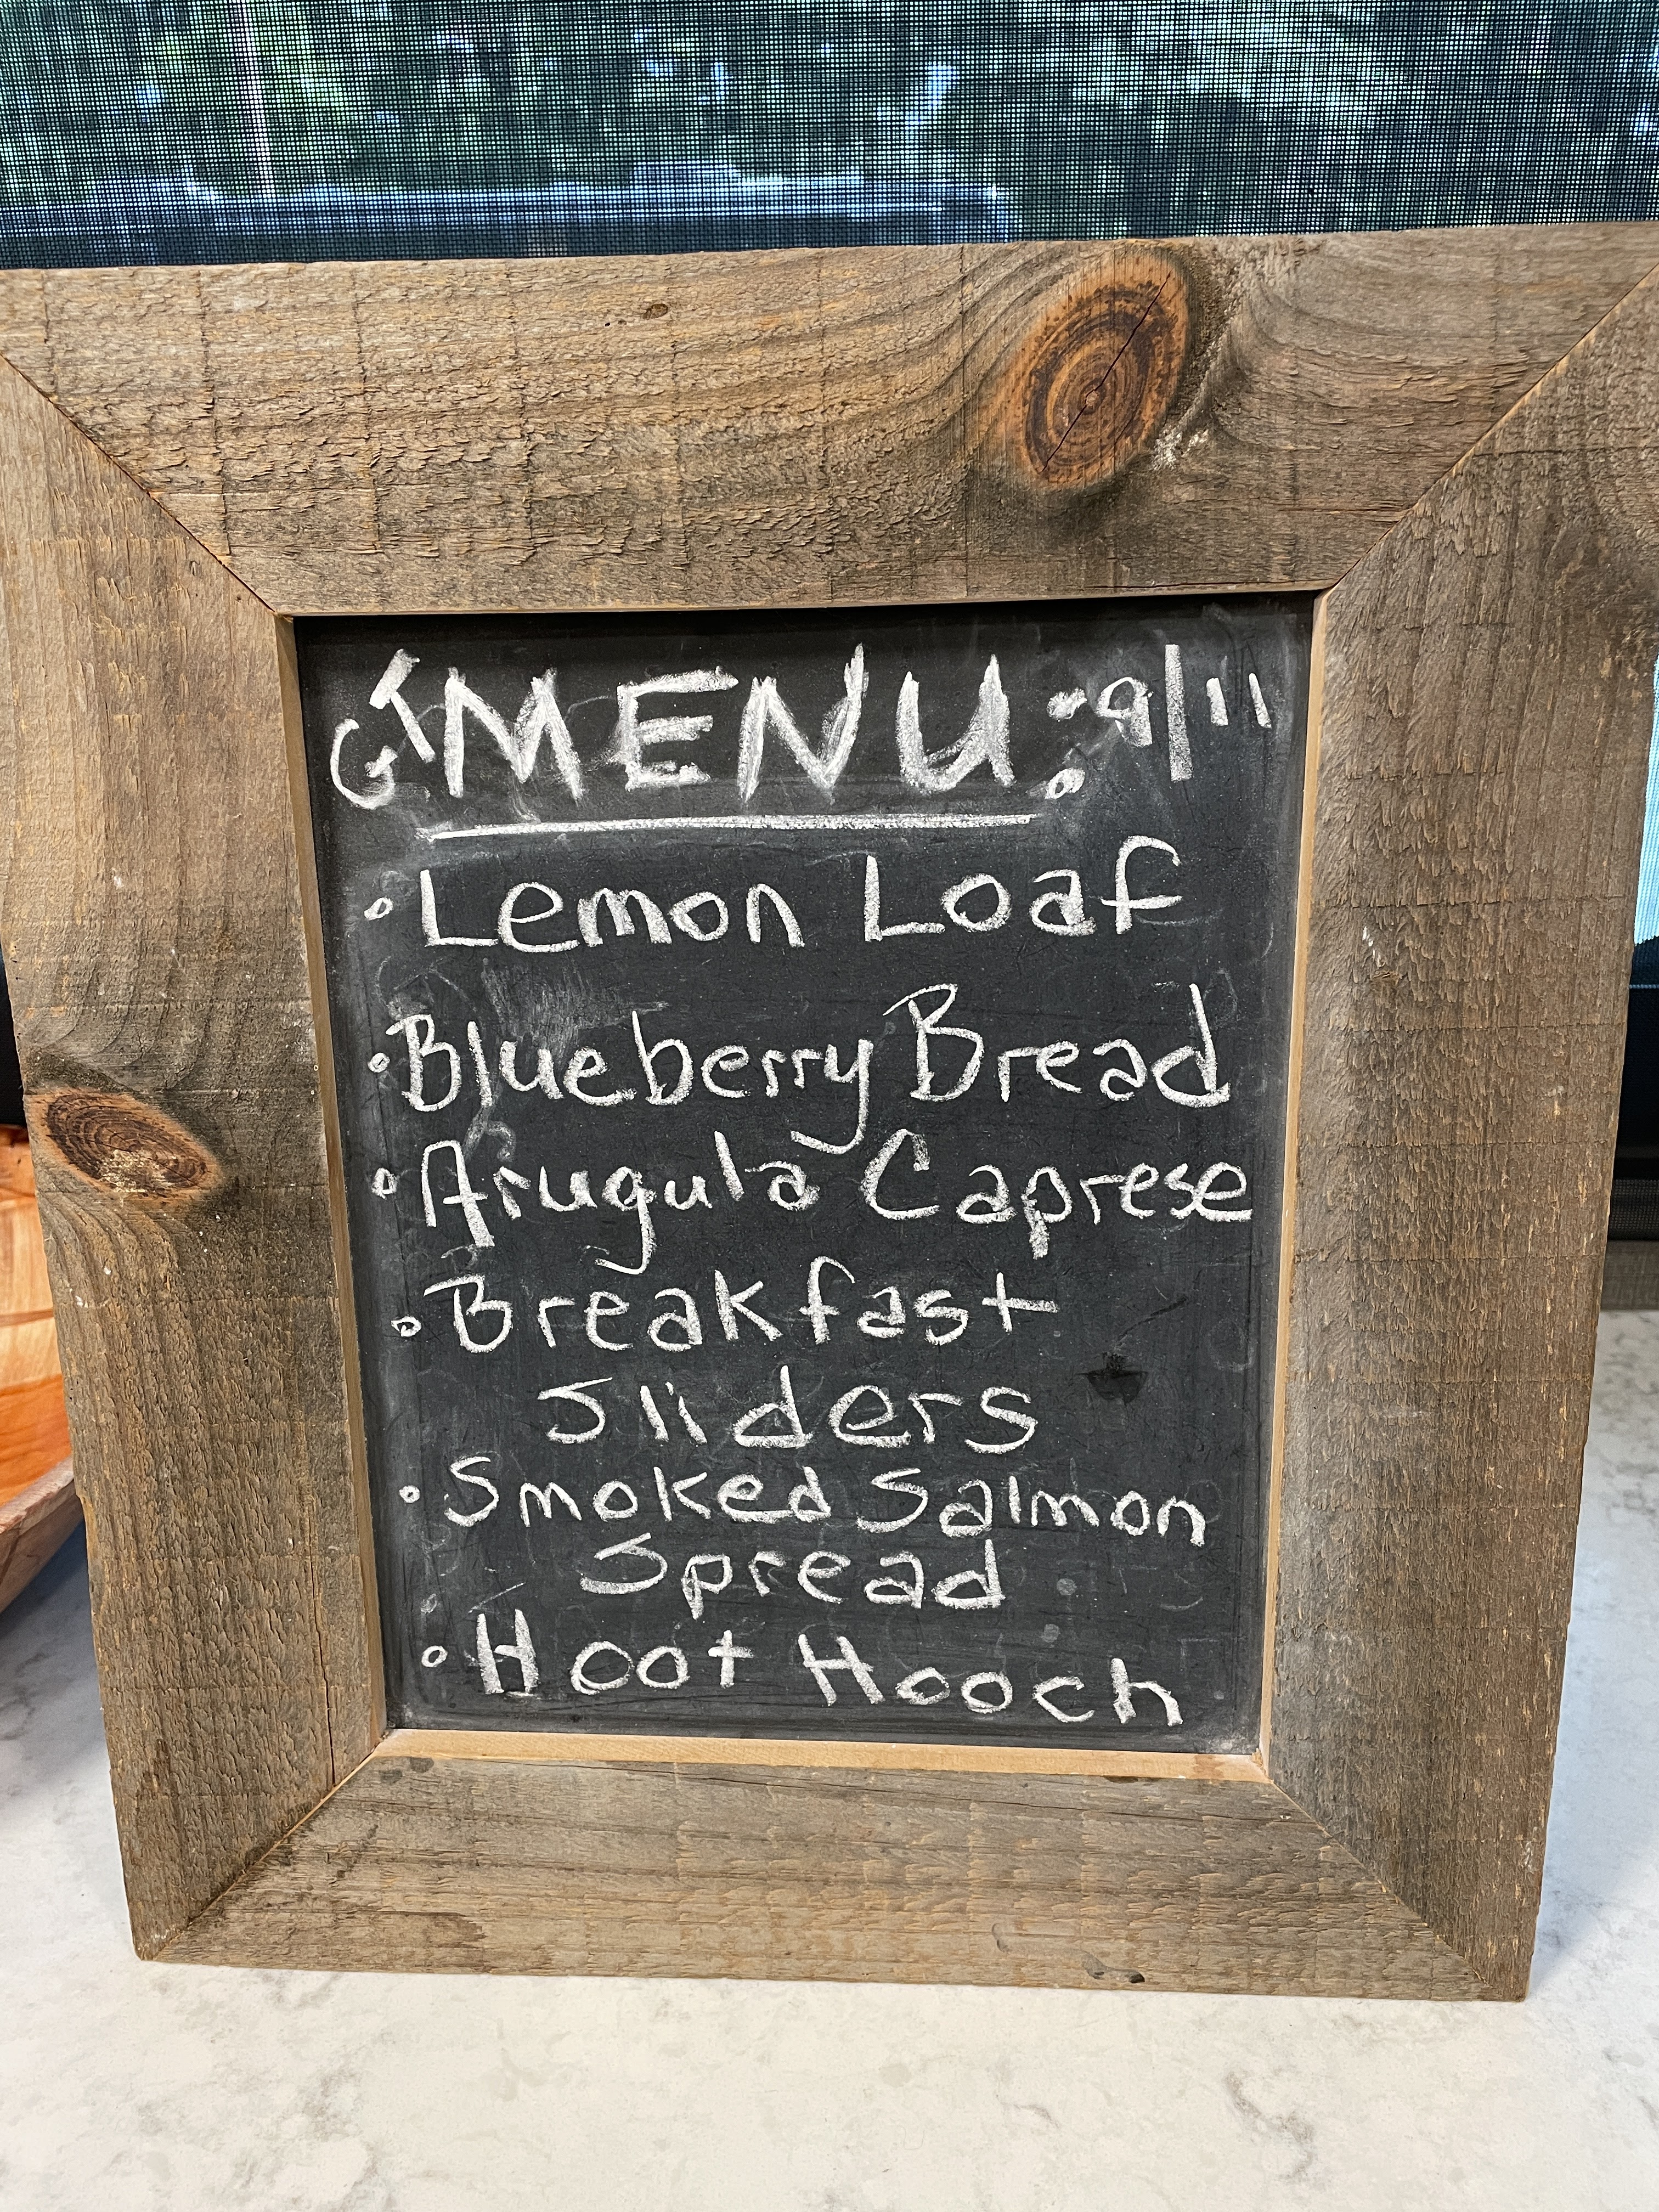 GT MENU: 9/11
• Lemon Loaf
• Blueberry Bread
• Arugula Caprese
• Breakfast
Sliders
• Smoked Salmon
Spread
• Hoot Hooch